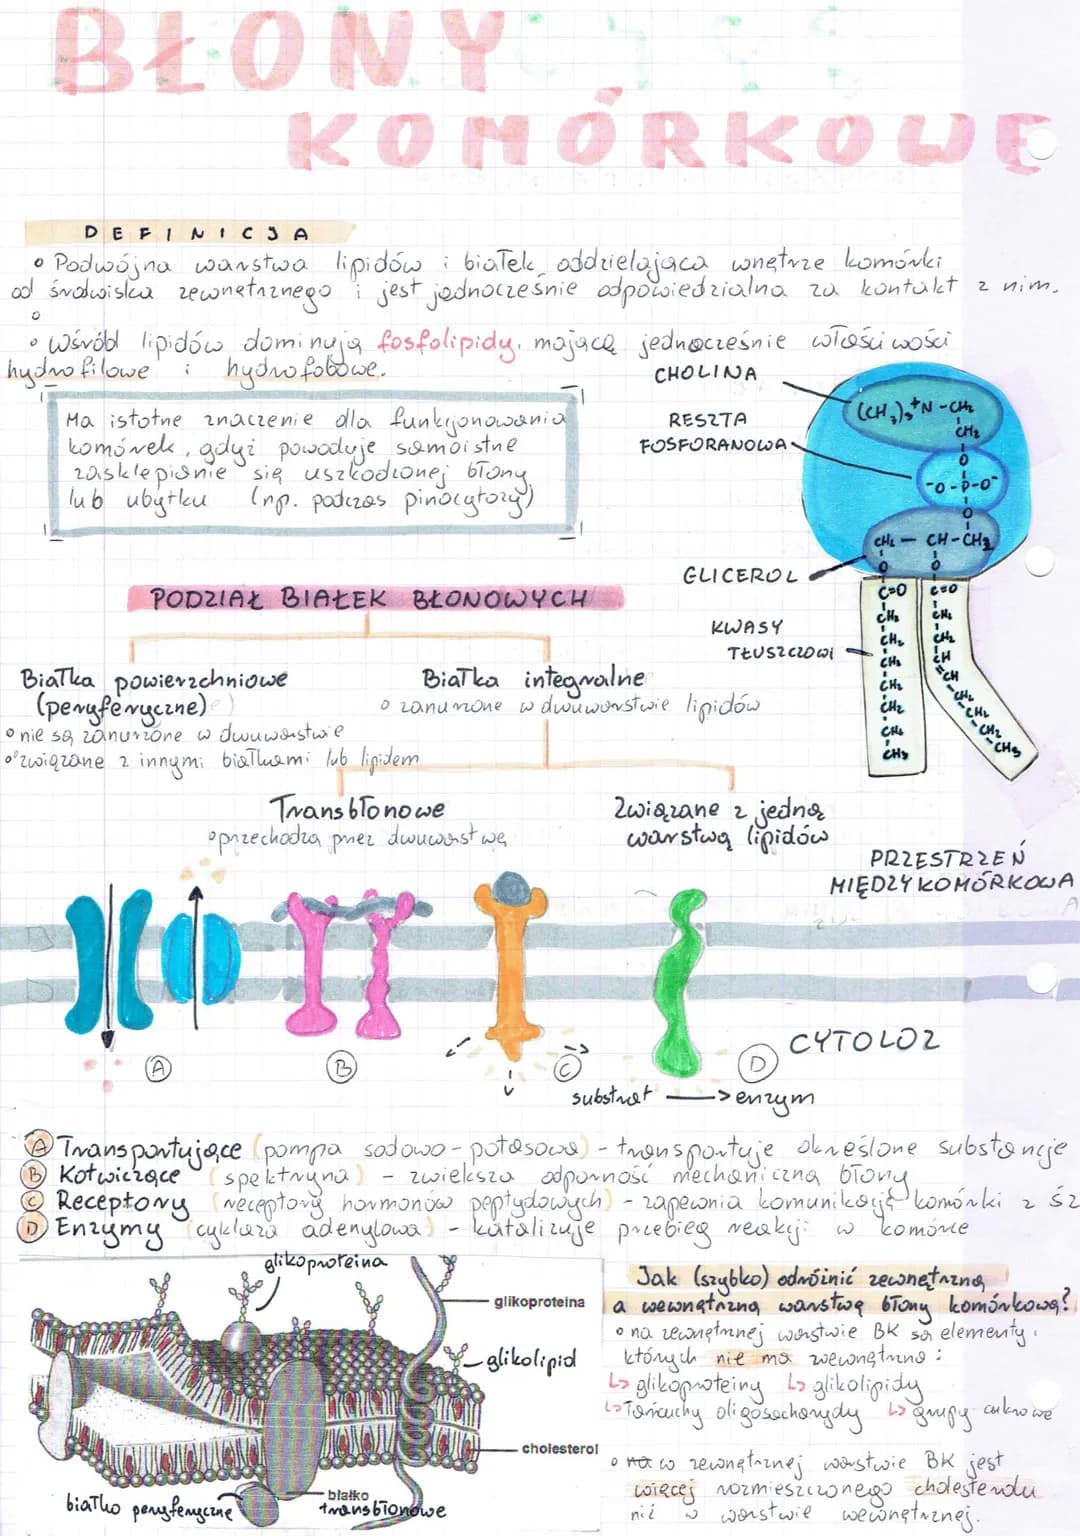 BŁONY
KOMÓRKOWE
DEFINICJA
◦ Podwójna warstwa lipidów i białek oddzielająca wnętrze komórki
od środwiska zewnętrznego i jest jednocześnie odpowiedzialna za kontakt z nim.
◦
◦ Wśród lipidów dominują fosfolipidy, mające jednocześnie właściwości
hydrofilowe i hydrofobowe.
Ma istotne znaczenie dla funkcjonowania
komórek, gdyż powoduje samoistne
zasklepianie się uszkodzonej błony
lub ubytku (np. podczas pinocytozy)
CHOLINA
RESZTA
FOSFORANOWA
GLICEROL
KWASY
TŁUSZCZOWI
(CH₃)₃⁺N-CH₂
CH₂
O
-O-P-O⁻
O
CH₂ - CH-CH₂
O O
C=O C=O
CH₂ CH₂
CH₂ CH₂
CH₂ CH
CH₂ CH
CH₂ CH₂
CH₂ CH₂
CH₃ CH₂
CH₃
PODZIAŁ BIAŁEK BŁONOWYCH
Białka powierzchniowe
(peryferyczne)
◦ nie są zanurzone w dwuwarstwie
◦ związane z innymi białkami lub lipidem
Białka integralne
◦ zanurzone w dwuwarstwie lipidów
Transbłonowe
◦ przechodzą przez dwuwarstwę
Związane z jedną
warstwą lipidów
PRZESTRZEŃ
MIĘDZYKOMÓRKOWA
A
B
C
D
CYTOLOZ
substrat → enzym
A Transportujące (pompa sodowo-potasowa) - transportuje określone substancje
B Kotwiczące (spektryna) - zwiększa odporność mechaniczną błony
C Receptory (receptory hormonów peptydowych) - zapewnia komunikację komórki z śz
D Enzymy (cyklaza adenylowa) - katalizuje przebieg reakcji w komórce
glikoproteina
glikoproteina
glikolipid
cholesterol
białko
transbłonowe
białko peryferyczne
Jak (szybko) odróżnić zewnętrzną
a wewnętrzną warstwę błony komórkowej?
◦ na zewnętrznej warstwie BK są elementy,
których nie ma wewnętrzna:
↳ glikoproteiny ↳ glikolipidy
↳ łańcuchy oligosacharydy ↳ grupy cukrowe
◦ na w zewnętrznej warstwie BK jest
więcej rozmieszczonego cholesterolu
niż w warstwie wewnętrznej.